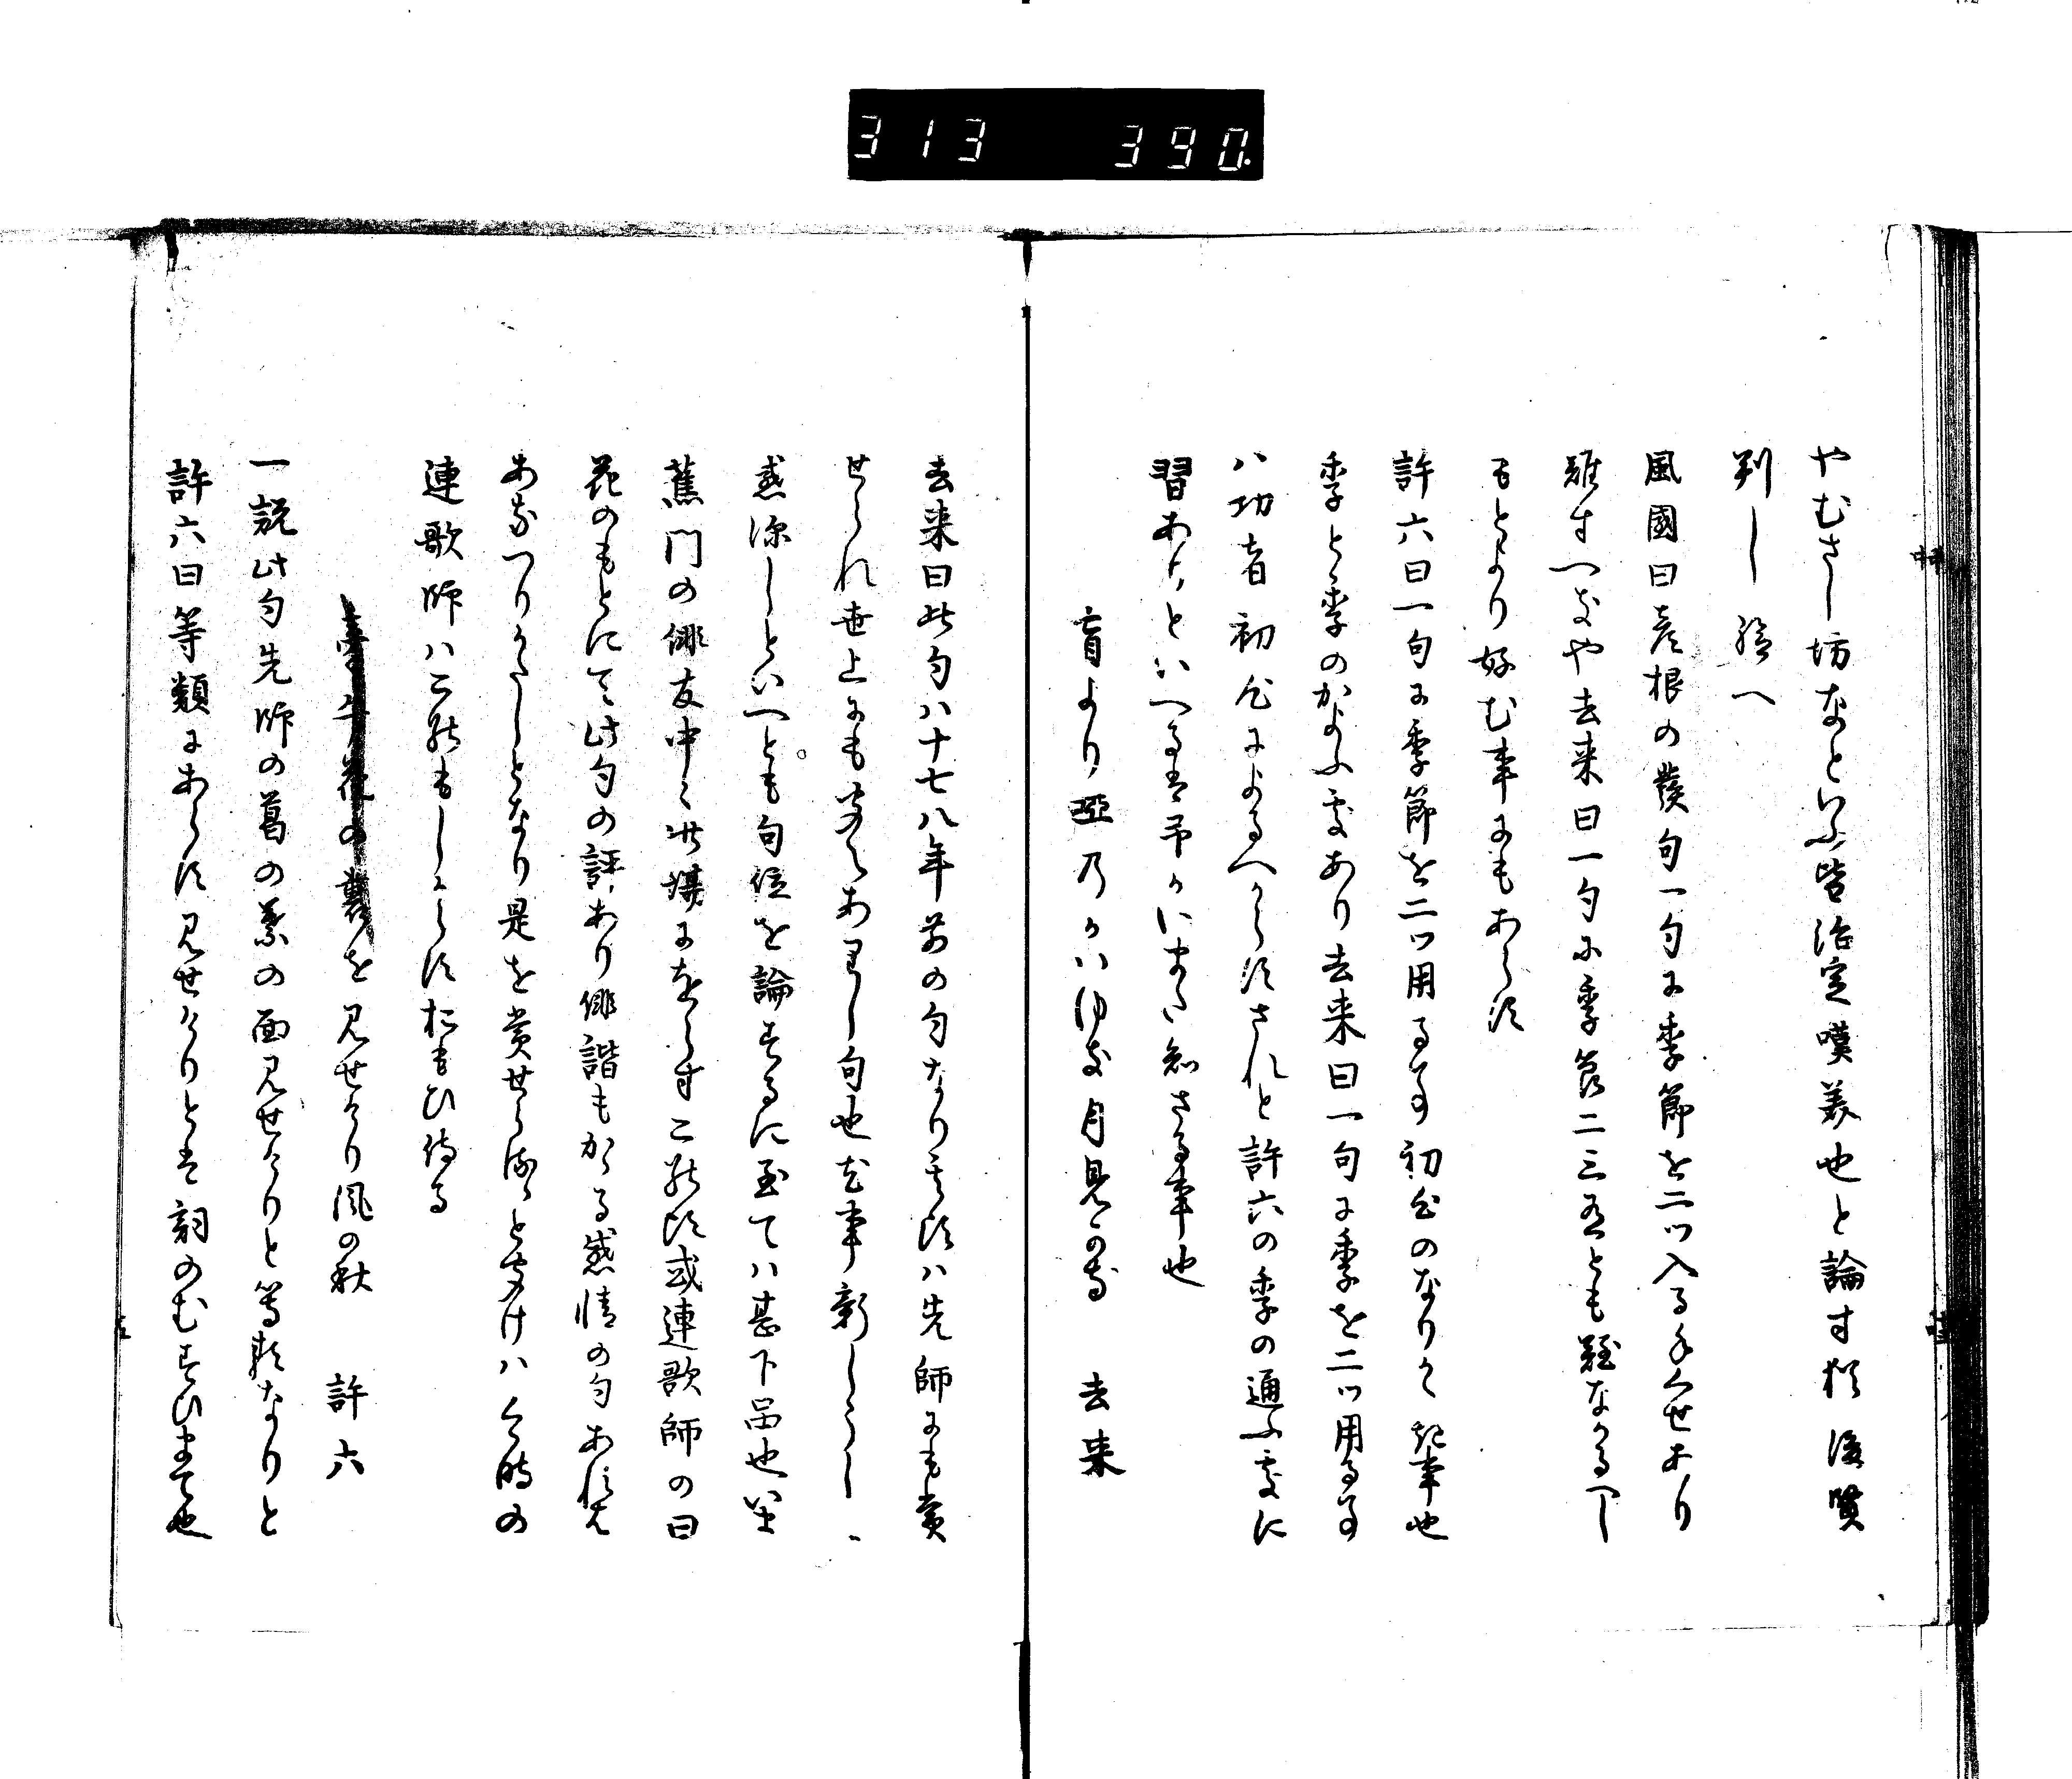 313 390.
やむさし坊なといふ皆治定嘆美也と論す猶後賢
判し給へ
風國曰彦根の發句一句に季節を二ツ入る手くせあり
難すへきや去来曰一句に季節二三有とも難なかるへし
もとより好む事にもあらす
許六曰一句に季節を二ツ用る事初心のなりかたき事也
季と季のかよふ處あり去来曰一句に季を二ツ用る事
ハ功者初心によるへからすされと許六の季の通ふ處に
習ありといへるは予かにまた知さる事也
盲より唖のかハゆき月見かな 去来
去来曰此句ハ十七八年前の句なり其頃ハ先師にも賞
せられ世上にも沙汰ありし句也尤事新しうし
感深しといへとも句位を論するに至てハ甚下品也
蕉門の俳友中〻此場にをらすこのころ或連歌師の曰
花のもとにて此句の評あり俳諧もかゝる感情の句あれは
あなつりかたしとなり是を賞せらるゝと聞けハ今時の
連歌師ハこのもしからすおもひ侍る
牽牛花の裏を見せけり風の秋 許六
一説此句先師の葛の葉の面見せけりと等類なりと
許六曰等類にあらす見せけりとは詞のむすひまて也